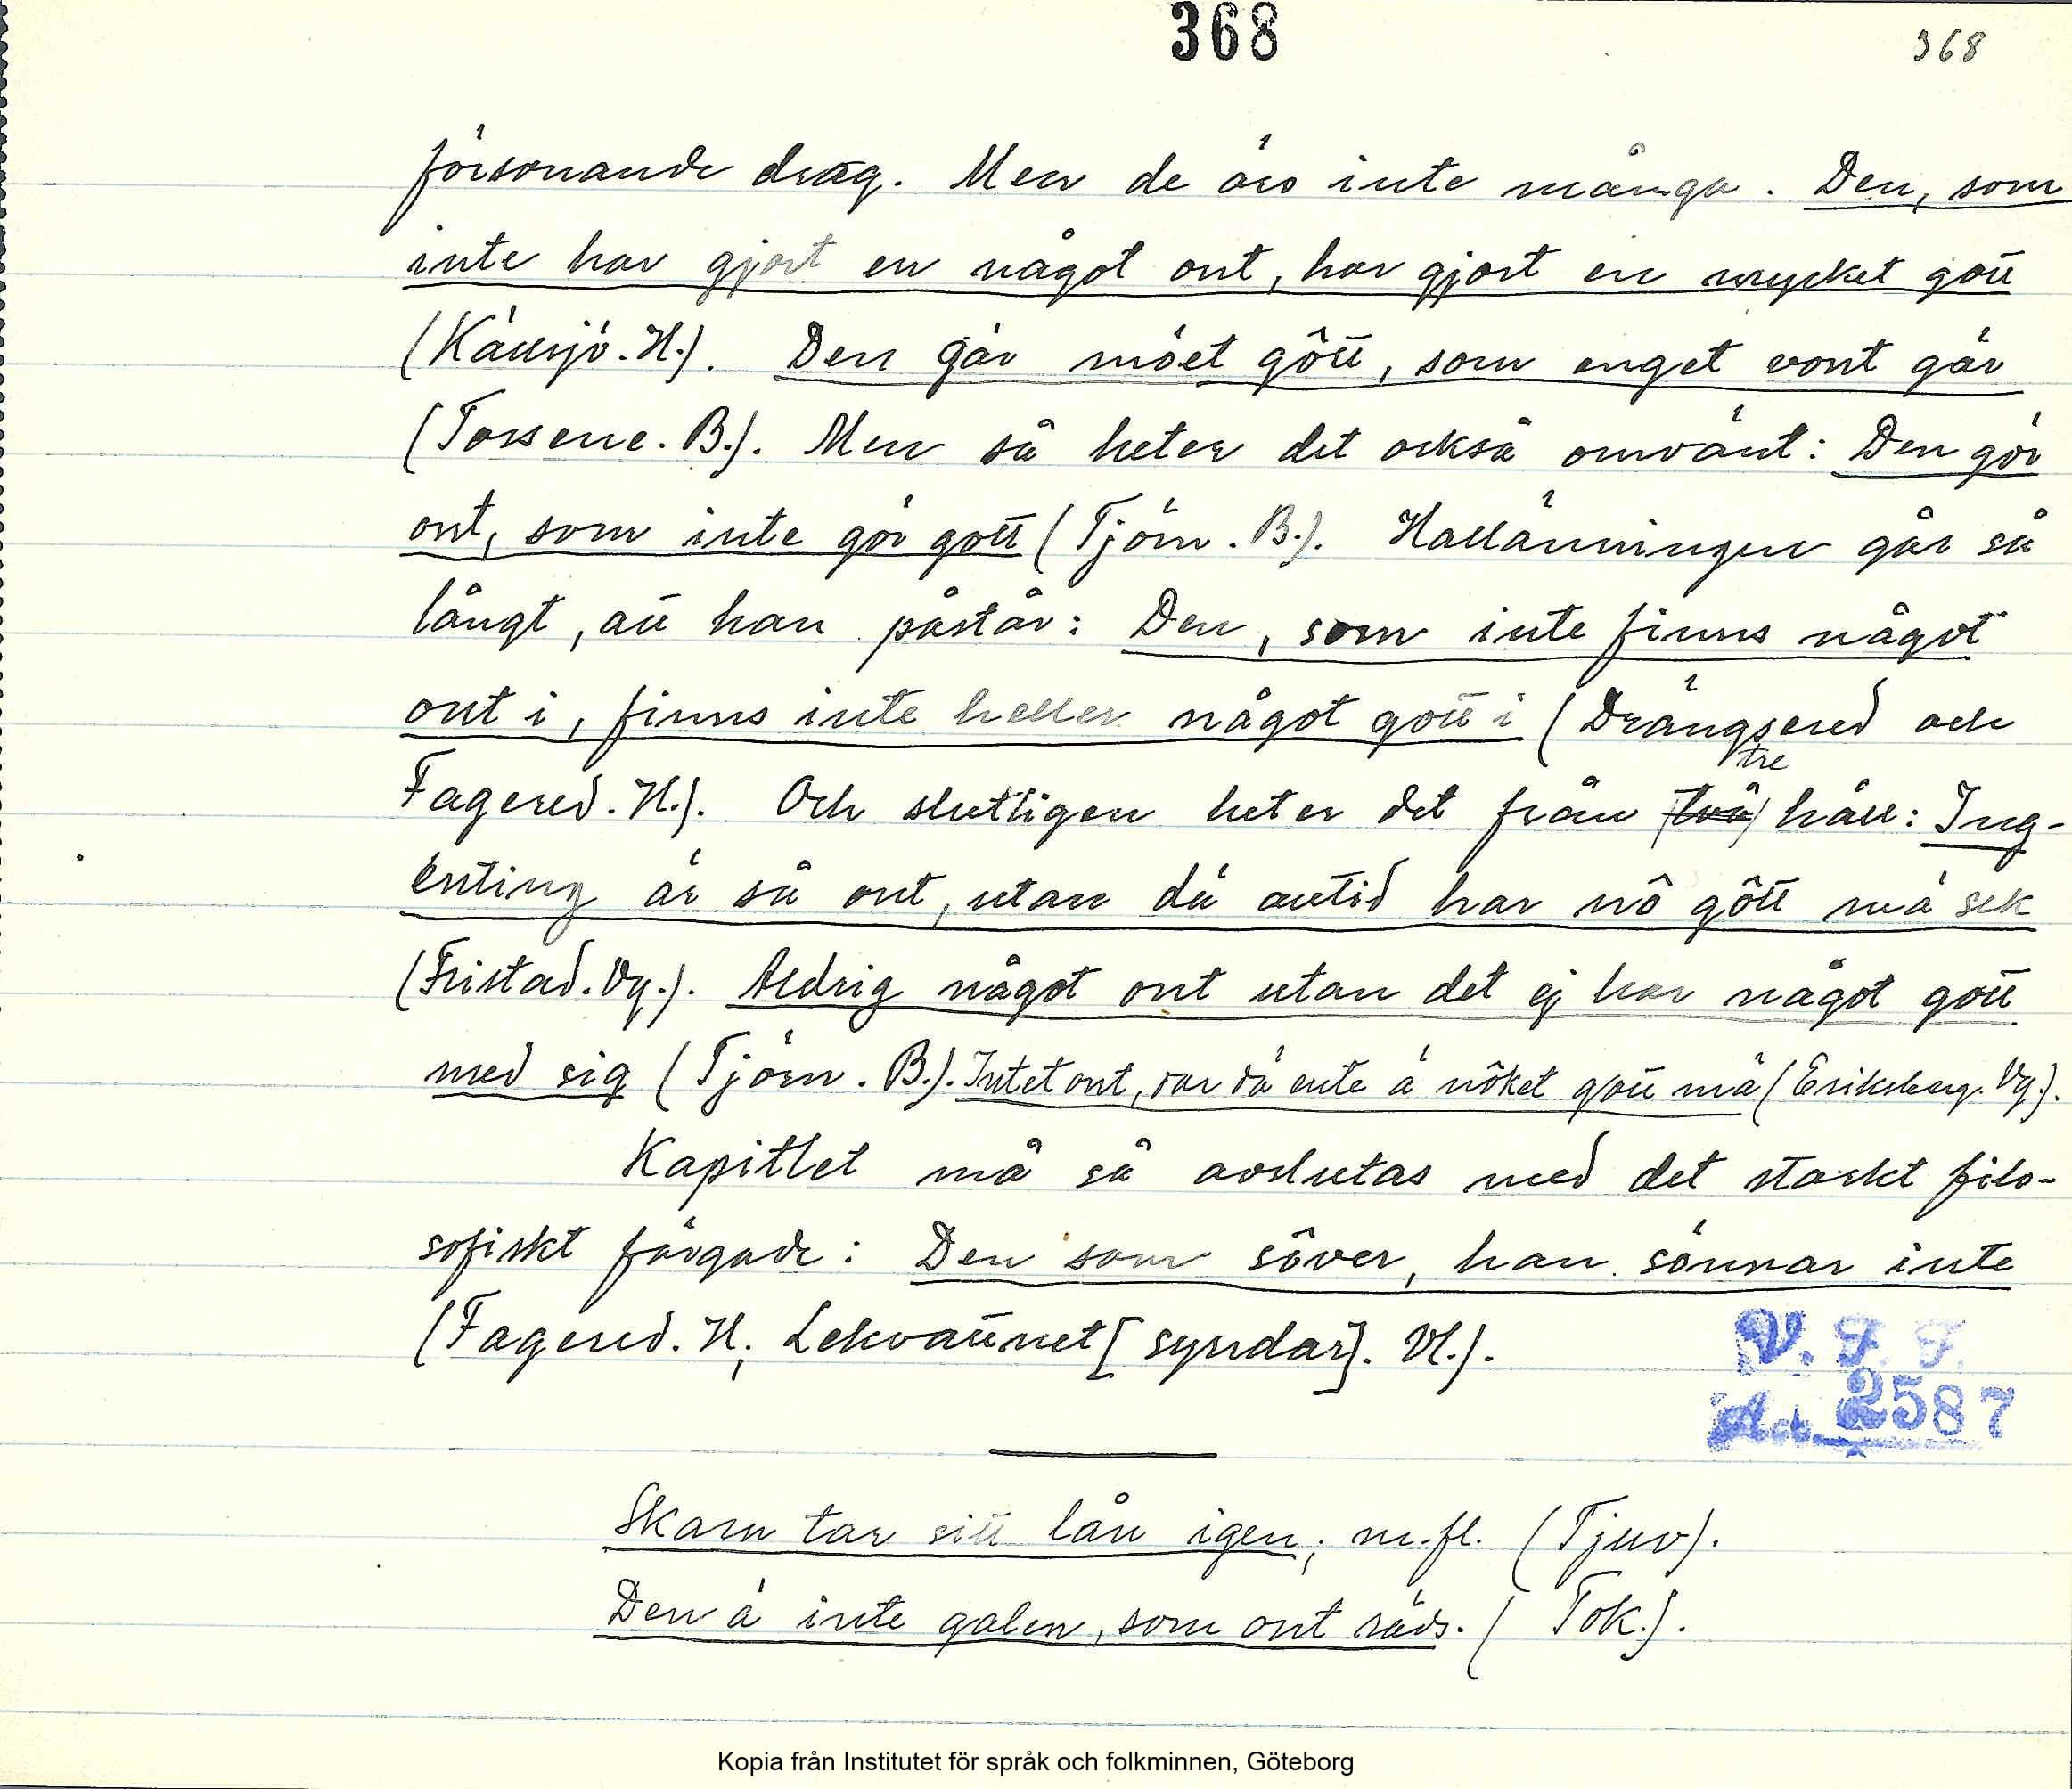 368
368
försonande drag. Men de äro inte många. Den, som
inte har gjort en något ont, har gjort en mycket gott
(Källsjö. H.). Den gär möet gôtt, som enget vont gär
(Tossene. B.). Men så heter det också omvänt: Den gör
ont, som inte gör gott (Tjörn. B.). Hallänningen går så
långt, att han påstår: Den, som inte finns något
ont i, finns inte heller något gott i (Drängsered och
Fagered. H.). Och slutligen heter det från två tre håll: Ing-
enting är så ont, utan dä alltid har nô gôtt mä sek
(Fristad. Vg.). Aldrig något ont utan det ej har något gott
med sig (Tjörn. B.). Intet ont, var dä ente ä nôket gott mä (Eriksberg. Vg.).
Kapitlet må så avslutas med det starkt filo-
sofiskt färgade: Den som sôver, han sönnar inte
(Fagered. H; Lekvattnet [syndar]. Vl.).
V. F. F.
Acc. 2587
Skam tar sitt lån igen; m.fl. (Tjuv).
Den ä inte galen, som ont räds. (Tok.).
Kopia från Institutet för språk och folkminnen, Göteborg